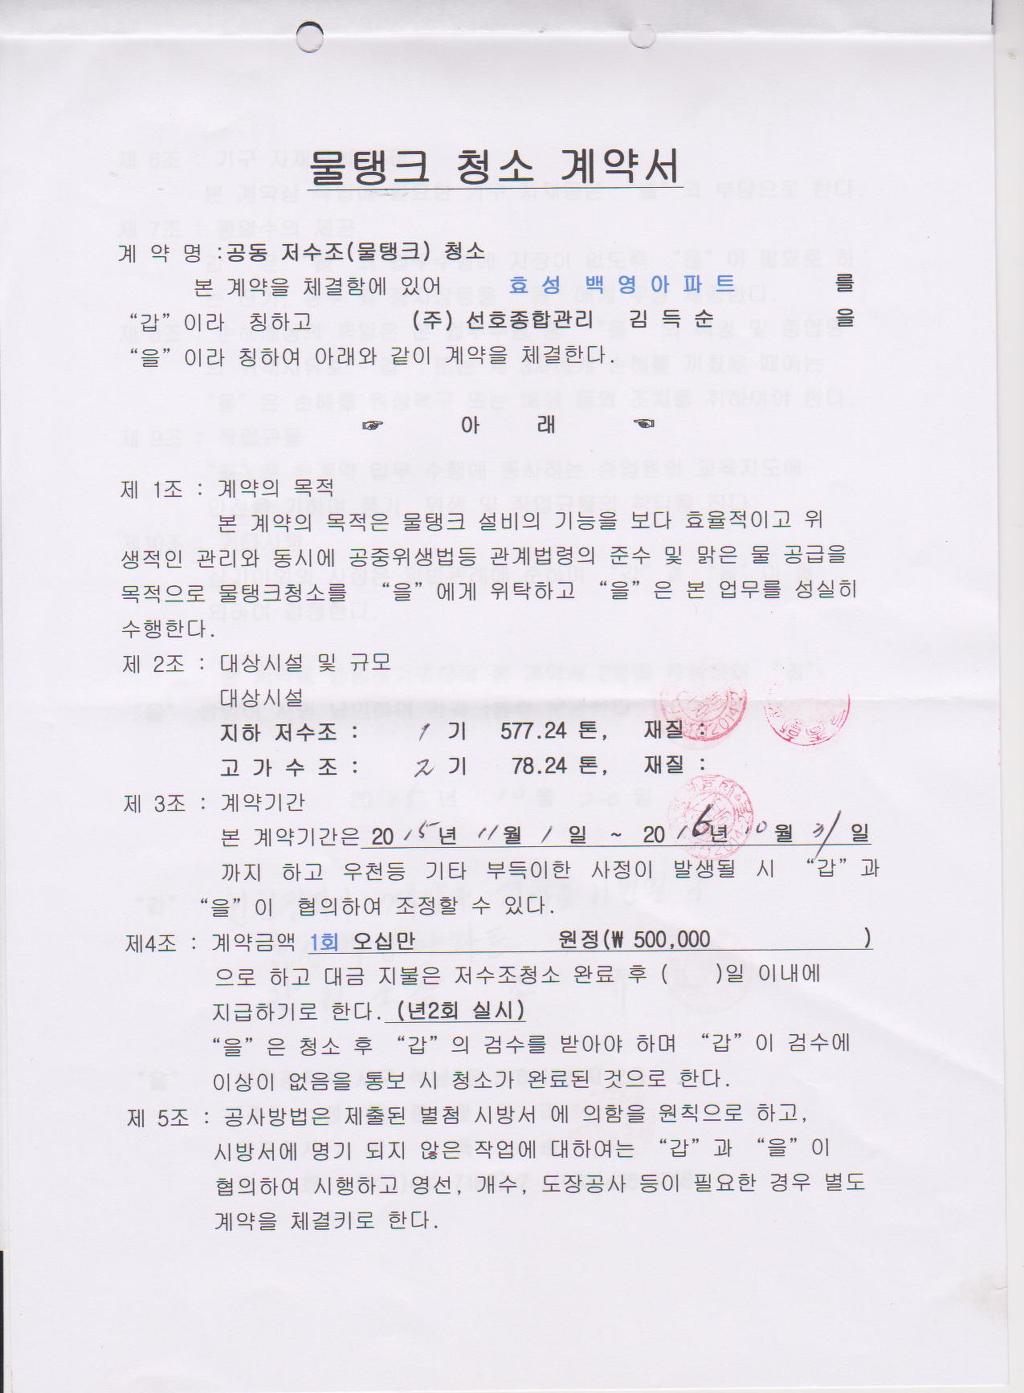 물탱크 청소 계약서
계 약 명 :공동 저수조(물탱크) 청소
본 계약을 체결함에 있어 효성 백영아파트 를
“갑”이라 칭하고 (주) 선호종합관리 김 득 순 을
“을”이라 칭하여 아래와 같이 계약을 체결한다.
☞ 아 래 ☜
제 1조 : 계약의 목적
본 계약의 목적은 물탱크 설비의 기능을 보다 효율적이고 위
생적인 관리와 동시에 공중위생법등 관계법령의 준수 및 맑은 물 공급을
목적으로 물탱크청소를 “을”에게 위탁하고 “을”은 본 업무를 성실히
수행한다.
제 2조 : 대상시설 및 규모
대상시설
지하 저수조 : 1 기 577.24 톤, 재질 :
고 가 수 조 : 2 기 78.24 톤, 재질 :
제 3조 : 계약기간
본 계약기간은 2015년 11월 1일 ~ 2016년 10월 31일
까지 하고 우천등 기타 부득이한 사정이 발생될 시 “갑”과
“을”이 협의하여 조정할 수 있다.
제4조 : 계약금액 1회 오십만 원정(₩ 500,000 )
으로 하고 대금 지불은 저수조청소 완료 후 ( )일 이내에
지급하기로 한다. (년2회 실시)
“을”은 청소 후 “갑”의 검수를 받아야 하며 “갑”이 검수에
이상이 없음을 통보 시 청소가 완료된 것으로 한다.
제 5조 : 공사방법은 제출된 별첨 시방서 에 의함을 원칙으로 하고,
시방서에 명기 되지 않은 작업에 대하여는 “갑”과 “을”이
협의하여 시행하고 영선, 개수, 도장공사 등이 필요한 경우 별도
계약을 체결키로 한다.